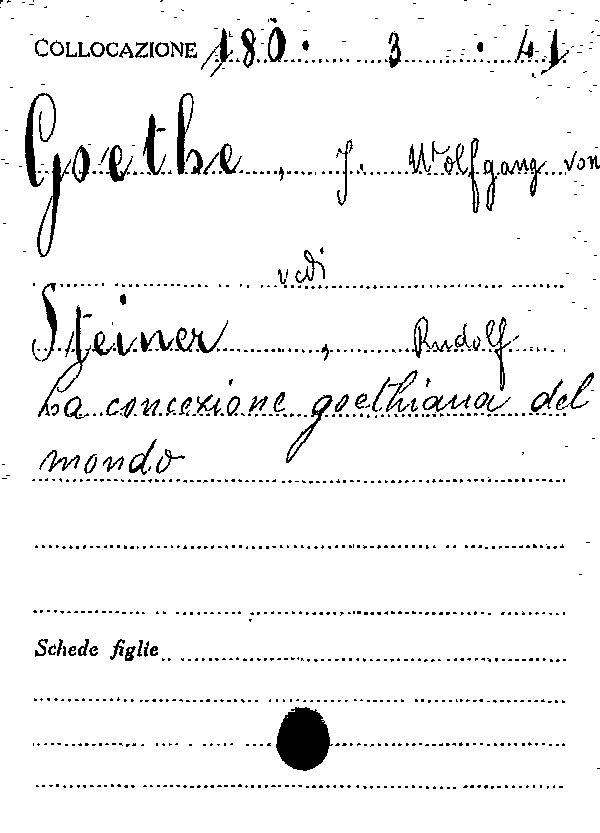 COLLOCAZIONE 180. 3. 41
Goethe, J. Wolfgang von
vedi
Steiner, Rudolf
La concezione goethiana del
mondo
Schede figlie